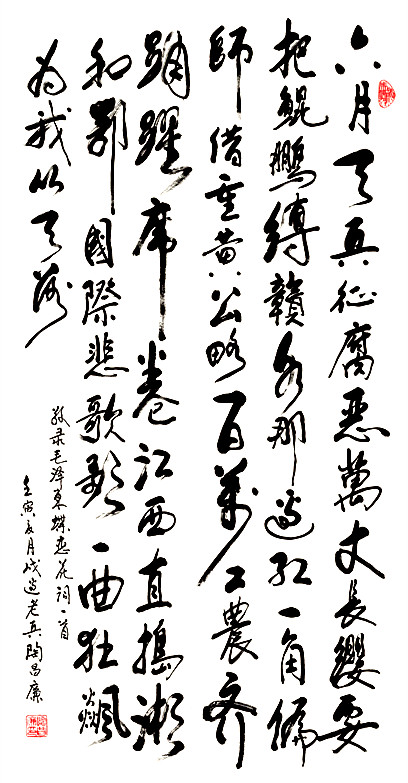 六月天兵征腐惡萬丈長纓要
把鯤鵬縛贛水那边红一角偏
師借重黄公略百萬工農齐
踊躍席卷江西直搗湘
和鄂國際悲歌歌一曲狂飆
为我从天落
敬录毛泽东蝶恋花词一首
壬寅夏月戍边老兵陶昌廉